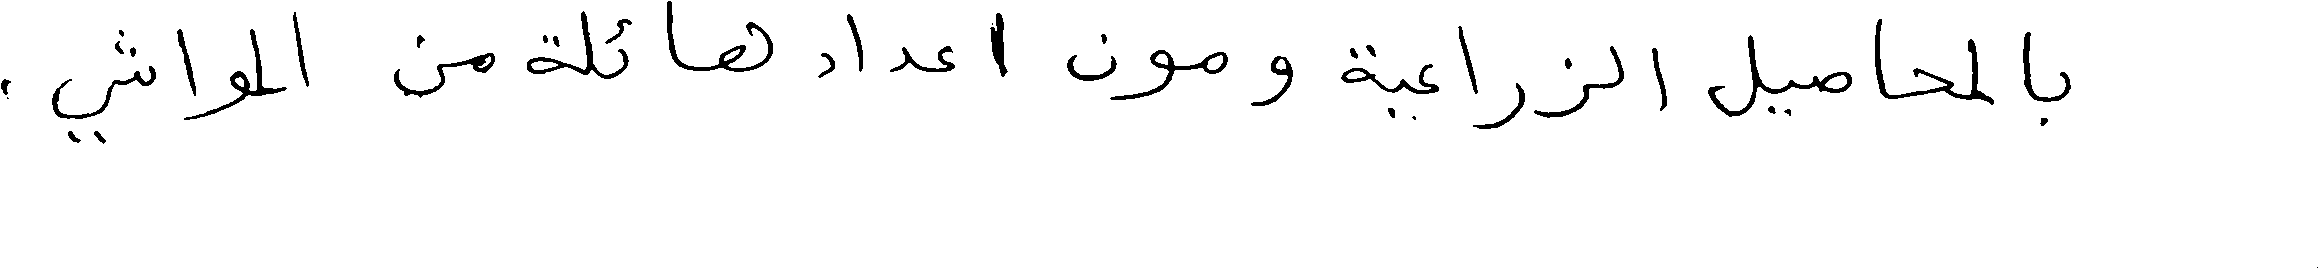 بالمحاصيل الزراعية ومون اعداد هائلة من المواشي .